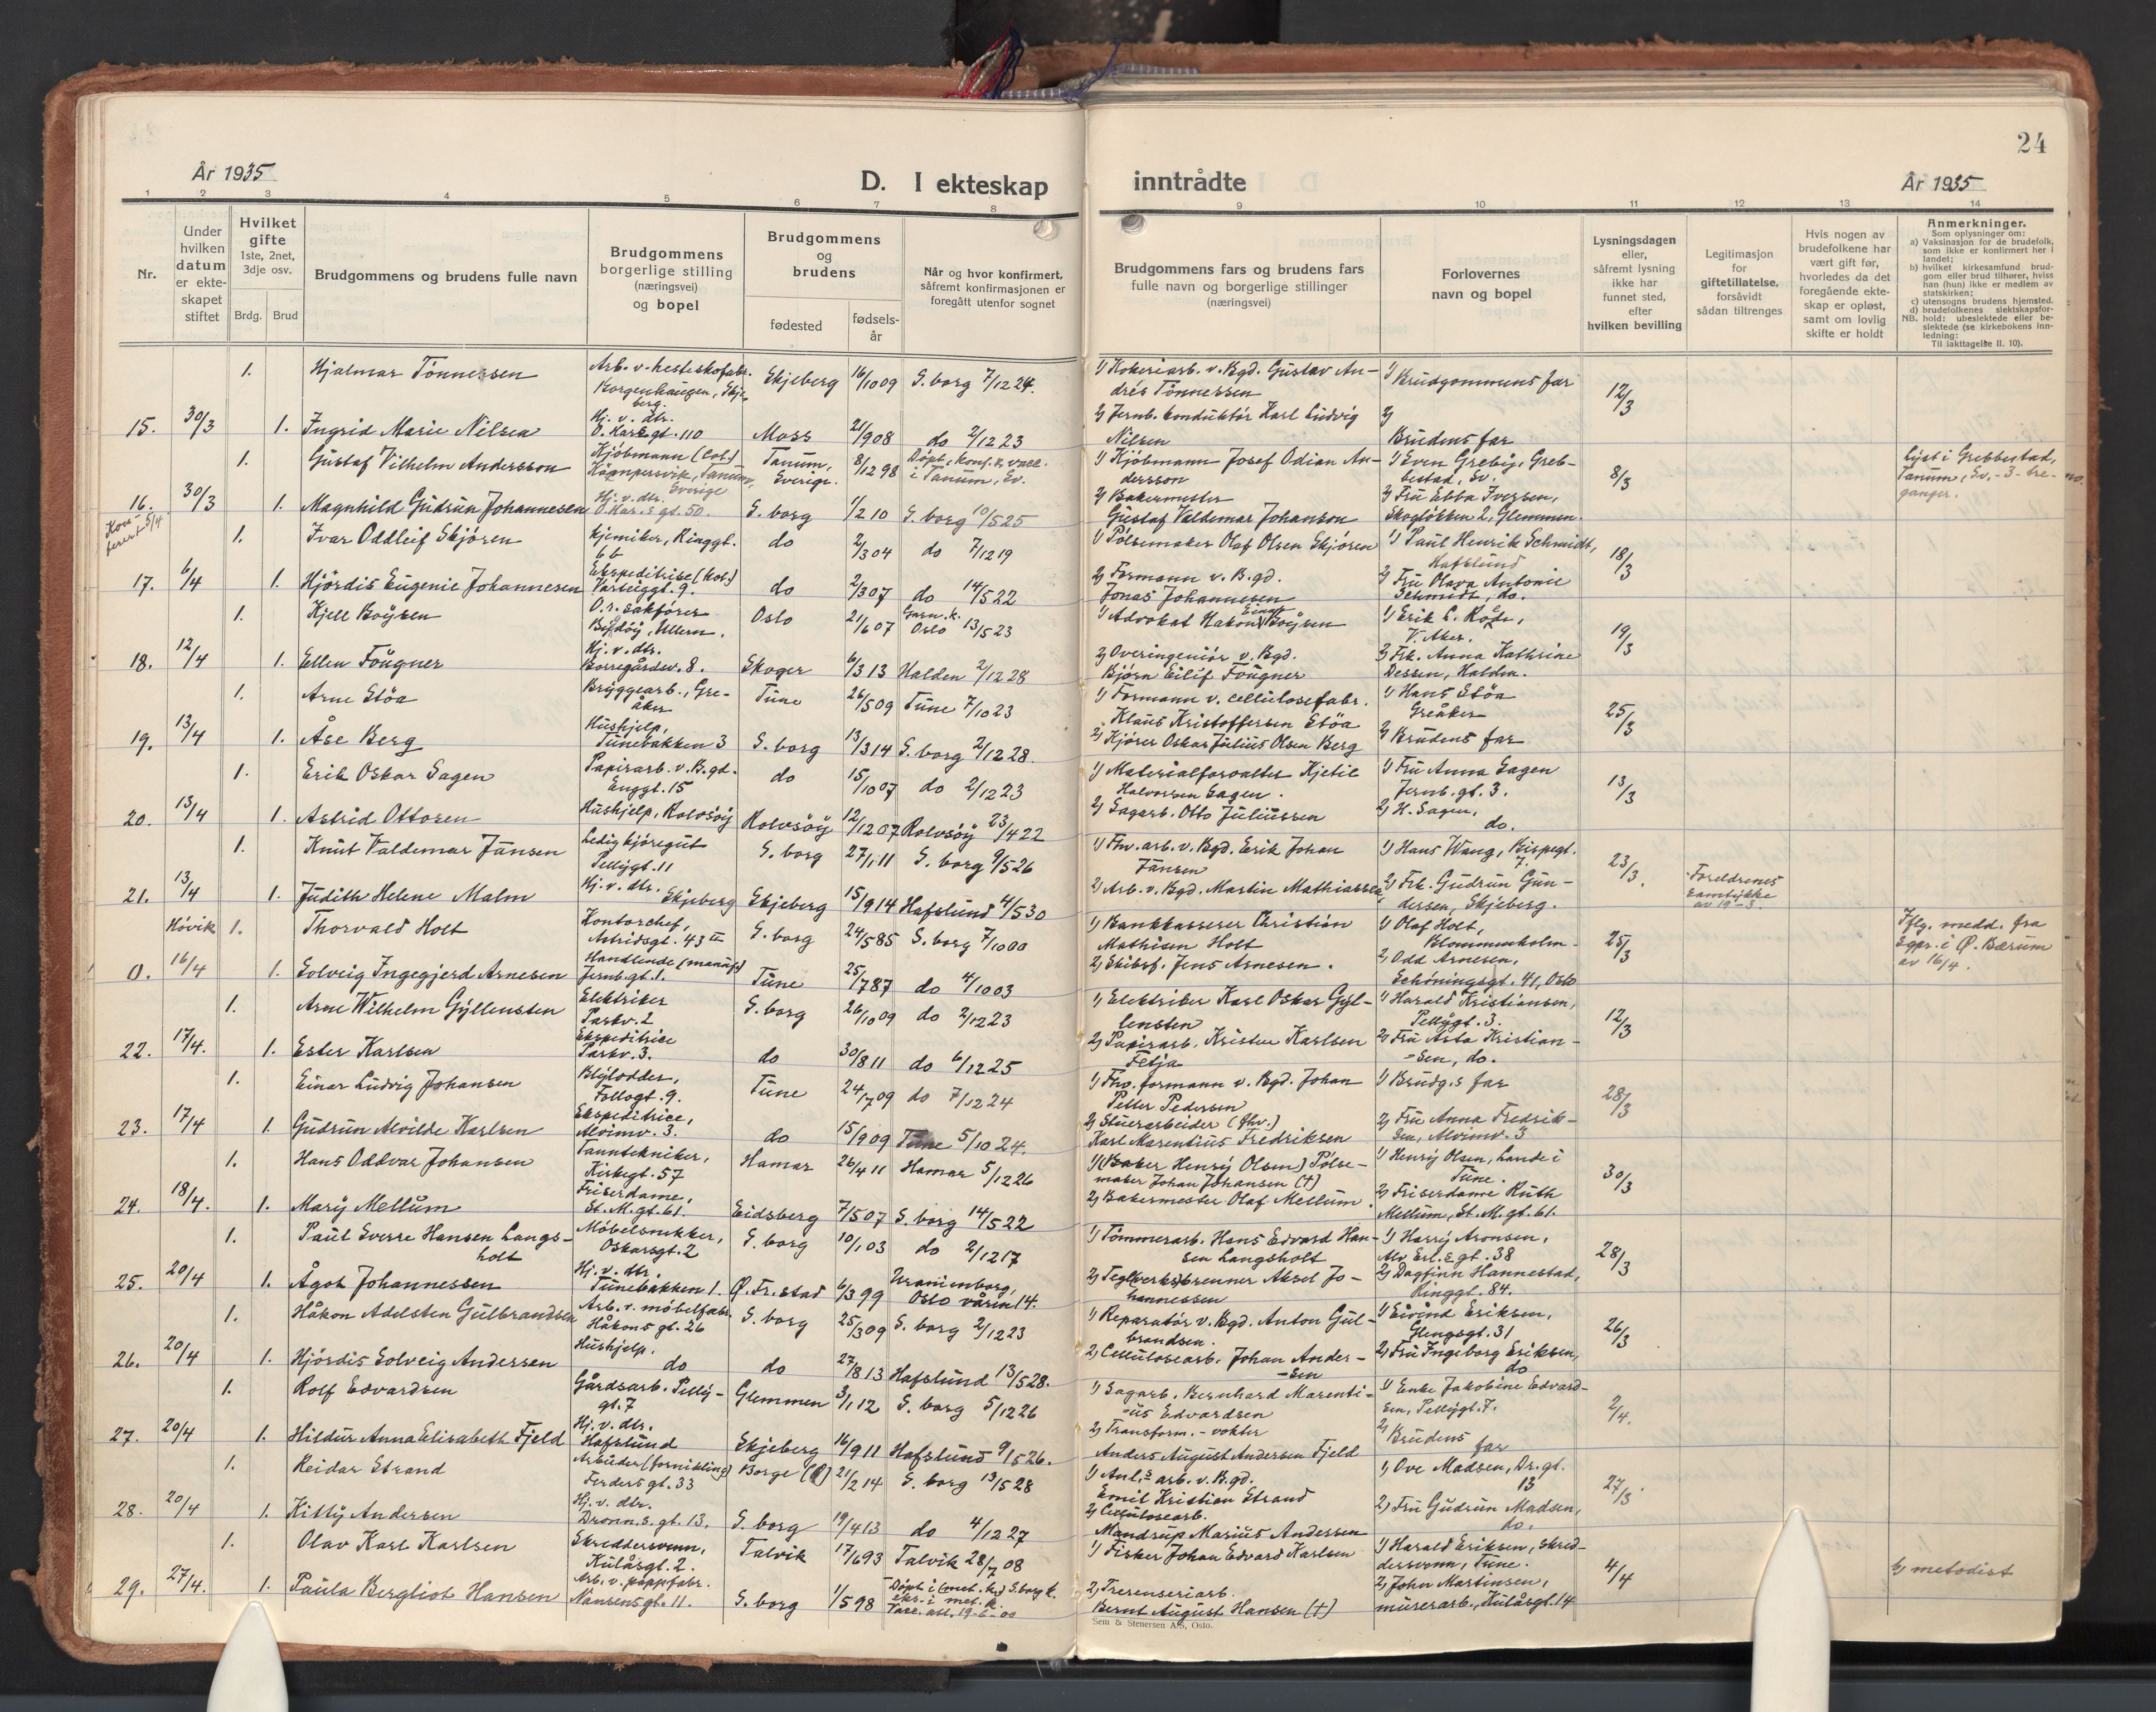 24
År 1935
D. I ekteskap
inntrådte
År 1935
1 2 3 4 5 6 7 8 9 10 11 12 13 14
Nr.
Under
hvilken
datum
er ekte-
skapet
stiftet
Hvilket
gifte
1ste, 2net,
3dje osv.
Brdg. Brud
Brudgommens og brudens fulle navn
Brudgommens
borgerlige stilling
(næringsvei)
og bopel
Brudgommens
og
brudens
fødested
fødsels-
år
Når og hvor konfirmert,
såfremt konfirmasjonen er
foregått utenfor sognet
Brudgommens fars og brudens fars
fulle navn og borgerlige stillinger
(næringsvei)
Forlovernes
navn og bopel
Lysningsdagen
eller,
såfremt lysning
ikke har
funnet sted,
efter
hvilken bevilling
Legitimasjon
for
giftetillatelse,
forsåvidt
sådan tiltrenges
Hvis nogen av
brudefolkene har
vært gift før,
hvorledes da det
foregående ekte-
skap er opløst,
samt om lovlig
skifte er holdt
Anmerkninger.
Som oplysninger om:
a) Vaksinasjon for de brudefolk,
som ikke er konfirmert her i
landet;
b) hvilket kirkesamfund brud-
gom eller brud tilhører, hviss
han (hun) ikke er medlem av
statskirken;
c) utensogns brudens hjemsted.
d) brudefolkenes slektskapsfor-
NB. hold: ubeslektede eller be-
slektede (se kirkebokens Inn-
ledning:
Til iakttagelse II. 10).
1. Hjalmar Tönnessen Arb. v. hesteskofabr. Borgenhaugen, Skje-berg. Skjeberg 16/10 09 S.borg 7/12 24. 1) Kokeriarb. v. Bgd. Gustav An-drés Tönnessen 1) Brudgommens far 12/3
15. 30/3 1. Ingrid Marie Nilsen Hj. v. dtr. O. Har.s gt. 110 Moss 21/9 08 do 2/12 23 2) Jernb. konduktör Karl Ludvig Nilsen 2) Brudens far
1. Gustaf Vilhelm Andersson Kjöbmann (kol.) Hamnpersvik, Tanum, Sverige Tanum, Sverige. 8/12 98 Döpt, konf. & vacc. i Tanum, Sv. 1) Kjöbmann Josef Odian An-dersson 1) Even Grebij, Greb-bestad, Sv. 8/3 Lyst i Grebbestad, Tanum, Sv. - 3 - tre - ganger.
16. 30/3 1. Magnhild Gudrun Johannesen Hj. v. dtr. O. Har.s gt. 50. S.borg 1/2 10 S.borg 10/5 25 2) Bakermester Gustaf Valdemar Johanson 2) Fru Ebba Iversen, Skoglökken 2, Glemmen.
1. Ivar Oddleif Skjören Kjemiker, Ringgt. 6 b do 2/3 04 do 7/12 19 1) Pölsemaker Olaf Olsen Skjören 1) Paul Henrik Schmidt, Hafslund 18/3
17. 6/4 1. Hjördis Eugenie Johannesen Ekspeditrise (kol.) Varteiggt. 9. do 2/3 07 do 14/5 22 2) Formann v. B.gd. Jonas Johannesen 2) Fru Olava Antonie Schmidt, do.
1. Kjell Boysen O.r. sakförer Bygdöy, Ullern. Oslo 21/6 07 Garn. k. Oslo 13/5 23 1) Advokat Hakon Einar Boysen 1) Erik L. Rode, V. Aker. 19/3
18. 12/4 1. Ellen Fougner Hj. v. dtr. Borregårdsv. 8. Skoger 6/3 13 Halden 2/12 28 2) Overingeniör v. Bgd. Björn Eilif Fougner 2) Frk. Anna Kathrine Dessen, Halden.
1. Arne Stöa Bryggearb., Gre-åker Tune 26/5 09 Tune 7/10 23 1) Formann v. cellulosefabr. Klaus Kristoffersen Stöa 1) Hans Stöa Greåker 25/3
19. 13/4 1. Åse Berg Hushjelp, Tunebakken 3 S.borg 13/3 14 S.borg 2/12 28. 2) Kjörer Oskar Julius Olsen Berg 2) Brudens far
1. Erik Oskar Sagen Papirarb. v. B.gd. Enggt. 15 do 15/10 07 do 2/12 23 1) Materialforvalter Kjetil Halvorsen Sagen. 1) Fru Anna Sagen Jernb. gt. 3. 13/3
20. 13/4 1. Astrid Ottosen Hushjelp, Rolvsöy Rolvsöy 12/12 07 Rolvsöy 23/4 22 2) Sagarb. Otto Juliussen 2) H. Sagen, do.
1. Knut Valdemar Jansen Ledig kjöregut Pellygt. 11 S.borg 27/1 11 S.borg 9/5 26 1) Fhv. arb. v. Bgd. Erik Johan Jansen 1) Hans Wang, Bispegt. 7. 23/3.
21. 13/4 1. Judith Helene Malm Hj. v. dtr. Skjeberg Skjeberg 15/9 14 Hafslund 4/5 30 2) Arb. v. Bgd. Martin Mathiassen 2) Frk. Gudrun Gun-dersen, Skjeberg. Foreldrenes samtykke av 19-3.
Hövik 1. Thorvald Holt Kontorchef, Astridsgt. 43 II S.borg 24/5 85 S.borg 7/10 00 1) Bankkasserer Christian Mathisen Holt 1) Olaf Holt, Blommenholm. 25/3 Iflg. medd. fra Sgpr. i Ø. Bærum av 16/4.
0. 16/4 1. Solveig Ingegjerd Arnesen Handlende (manuf.) Jernb.gt. 1. Tune 25/7 87 do 4/10 03 2) Skibsf. Jens Arnesen. 2) Odd Arnesen, Schöningsgt. 41, Oslo
1. Arne Wilhelm Gyllensten Elektriker Parkv. 2 S.borg 26/10 09 do 2/12 23 1) Elektriker Karl Oskar Gyl-lensten 1) Harald Kristiansen, Pellygt. 3. 12/3
22. 17/4. 1. Ester Karlsen Ekspeditrice Parkv. 3. do 30/8 11 do 6/12 25 2) Papirarb. Kristen Karlsen Fetja 2) Fru Asta Kristian-sen, do.
1. Einar Ludvig Johansen Blylodder, Follogt. 9. Tune 24/7 09 do 7/12 24 1) Fhv. formann v. Bgd. Johan Petter Pedersen 1) Brudg.s far 28/3
23. 17/4 1. Gudrun Alvilde Karlsen Ekspeditrice, Alvimv. 3. do 15/9 09 Tune 5/10 24. 2) Stuerarbeider (fhv.) Karl Marentius Fredriksen 2) Fru Anna Fredrik-sen, Alvimv. 3
1. Hans Oddvar Johansen Tanntekniker, Kirkegt. 57 Hamar 26/4 11 Hamar 5/12 26 1) (Baker Henry Olsen) Pölse-maker Johan Johansen (†) 1) Henry Olsen, Lande i Tune. 30/3
24. 18/4. 1. Mary Mellum Friserdame, St. M. gt. 61. Eidsberg 7/5 07 S.borg 14/5 22 2) Bakermester Olaf Mellum. 2) Friserdame Ruth Mellum, St. M. gt. 61.
1. Paul Sverre Hansen Langs-holt Möbelsnekker, Oskarsgt. 2 S.borg 10/1 03 do 2/12 17 1) Tömmerarb. Hans Edvard Han-sen Langsholt 1) Harry Aronsen, Alv. Erl.s gt. 38 28/3
25. 20/4 1. Ågot Johannessen Hj. v. dtr. Tunebakken 1. Ø. Fr.stad 6/3 99 Uranienborg, Oslo våren 14. 2) Teglverksbrenner Aksel Jo-hannessen 2) Dagfinn Hannestad, Ringgt. 84.
1. Håkon Adelsten Gulbrandsen Arb. v. möbelfabr. Håkons gt. 26 S.borg 25/3 09 S.borg 2/12 23 1) Reparatör v. Bgd. Anton Gul-brandsen. 1) Eivind Eriksen, Glengsgt. 31 26/3
26. 20/4 1. Hjördis Solveig Andersen Hushjelp. do do 27/8 13 Hafslund 13/5 28. 2) Cellulosearb. Johan Ander-sen 2) Fru Ingeborg Eriksen, do
1. Rolf Edvardsen Gårdsarb. Pelly-gt. 7 Glemmen 3/1 12 S.borg 5/12 26 1) Sagarb. Bernhard Marenti-us Edvardsen 1) Enke Jakobine Edvard-sen, Pellygt. 7. 2/4.
27. 20/4 1. Hildur Anna Elisabeth Fjeld Hj. v. dtr. Hafslund Skjeberg 16/9 11 Hafslund 9/5 26. 2) Transform. - vokter Anders August Andersen Fjeld 2) Brudens far
1. Reidar Strand Arbeider (fornikling) Ferders gt. 33 Borge (Ø) 21/2 14 S.borg 13/5 28 1) Anl.s arb. v. B.gd. Emil Kristian Strand 1) Ove Madsen, Dr. gt. 13 27/3
28. 20/4 1. Kitty Andersen Hj. v. dtr. Dronn.s. gt. 13. S.borg 19/4 13 do 4/12 27 2) Cellulosearb. Mandrup Marius Andersen 2) Fru Gudrun Madsen, do.
1. Olav Karl Karlsen Skreddersvenn, Kulåsgt. 2. Talvik 17/6 93 Talvik 28/7 08 1) Fisker Johan Edvard Karlsen 1) Harald Eriksen, skred-dersvenn, Tune. 4/4
29. 27/4. 1. Paula Bergliot Hansen Arb. v. pappfabr. Nansensgt. 11. S.borg 1/5 98 Döpt i (met. k.) S.borg k. i met. k. Vacc. att. 19-6-00 2) Bernt August Hansen (†) 2) John Martinsen, murerarb., Kulåsgt. 14 b) metodist
Sem & Stenersen A/S, Oslo.